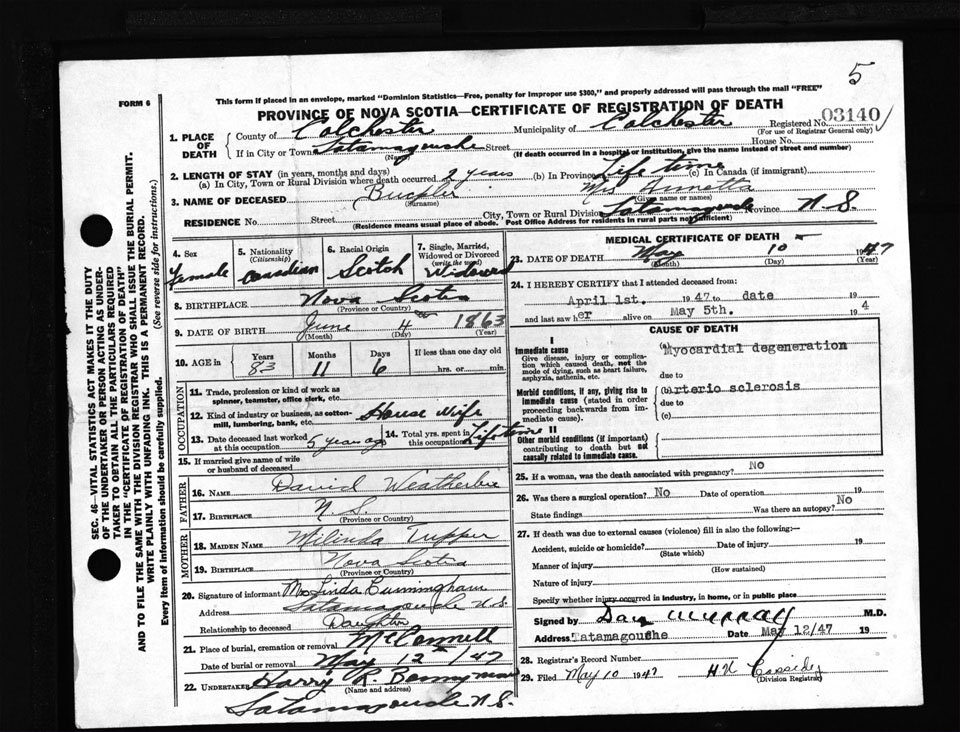 5
FORM 6
This form if placed in an envelope, marked "Dominion Statistics—Free, penalty for improper use $300," and properly addressed will pass through the mail "FREE"
PROVINCE OF NOVA SCOTIA—CERTIFICATE OF REGISTRATION OF DEATH
Registered No. 03140
(For use of Registrar General only)
1. PLACE OF DEATH
County of Colchester Municipality of Colchester
If in City or Town Tatamagouche Street House No.
(Name) (If death occurred in a hospital or institution, give the name instead of street and number)
2. LENGTH OF STAY (in years, months and days)
(a) In City, Town or Rural Division where death occurred 2 years (b) In Province Life time (c) In Canada (if immigrant)
3. NAME OF DECEASED Mrs Annetta
(Surname) (Given name or names)
RESIDENCE No. Street City, Town or Rural Division Tatamagouche Province N.S.
(Residence means usual place of abode. Post Office Address for residents in rural parts not sufficient)
4. Sex Female
5. Nationality (Citizenship) Canadian
6. Racial Origin Scotch
7. Single, Married, Widowed or Divorced (write the word) Widowed
8. BIRTHPLACE Nova Scotia
(Province or Country)
9. DATE OF BIRTH June 4 1863
(Month) (Day) (Year)
10. AGE in Years Months Days If less than one day old
83 11 6 hrs. or min.
OCCUPATION
11. Trade, profession or kind of work as spinner, teamster, office clerk, etc.
12. Kind of industry or business, as cotton-mill, lumbering, bank, etc. House Wife
13. Date deceased last worked at this occupation 5 years ago
14. Total yrs. spent in this occupation Lifetime
15. If married give name of wife or husband of deceased
FATHER
16. NAME David Weatherbie
17. BIRTHPLACE N.S.
(Province or Country)
MOTHER
18. MAIDEN NAME Milinda Tupper
19. BIRTHPLACE Nova Scotia
(Province or Country)
20. Signature of informant Mrs Linda Cunningham
Address Tatamagouche N.S.
Relationship to deceased Daughter
21. Place of burial, cremation or removal McConnell
Date of burial or removal May 12 /47
22. UNDERTAKER Harry R.
(Name and address)
Tatamagouche N.S.
MEDICAL CERTIFICATE OF DEATH
23. DATE OF DEATH May 10 1947
(Month) (Day) (Year)
24. I HEREBY CERTIFY that I attended deceased from:
April 1st. 1947 to date
and last saw her alive on May 5th. 194
CAUSE OF DEATH
I
Immediate cause
Give disease, injury or complication which caused death, not the mode of dying, such as heart failure, asphyxia, asthenia, etc.
(a) Myocardial degeneration
due to
Morbid conditions, if any, giving rise to immediate cause (stated in order proceeding backwards from immediate cause).
(b) Arterio sclerosis
due to
(c)
II
Other morbid conditions (if important) contributing to death but not causally related to immediate cause.
25. If a woman, was the death associated with pregnancy? No
26. Was there a surgical operation? No Date of operation 19
State findings Was there an autopsy? No
27. If death was due to external causes (violence) fill in also the following:
Accident, suicide or homicide? Date of injury 19
(State which)
Manner of injury
(How sustained)
Nature of injury
Specify whether injury occurred in industry, in home, or in public place
Signed by Dan Murray M.D.
Address Tatamagouche Date May 12/47 19
28. Registrar's Record Number
29. Filed May 10 1947 Cassidy
(Division Registrar)
SEC. 46—VITAL STATISTICS ACT MAKES IT THE DUTY
OF THE UNDERTAKER OR PERSON ACTING AS UNDERTAKER TO OBTAIN ALL THE PARTICULARS REQUIRED
IN THE "CERTIFICATE OF REGISTRATION OF DEATH"
AND TO FILE THE SAME WITH THE DIVISION REGISTRAR WHO SHALL ISSUE THE BURIAL PERMIT.
WRITE PLAINLY WITH UNFADING INK. THIS IS A PERMANENT RECORD.
Every item of information should be carefully supplied. (See reverse side for instructions.)